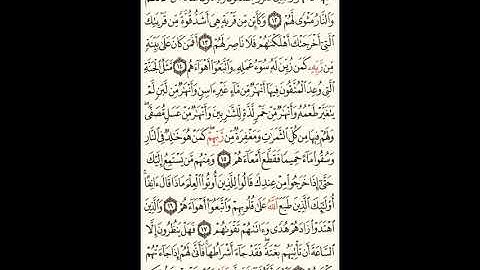 وَالنَّارُ مَثْوًى لَّهُمْ ۝١٢ وَكَأَيِّن مِّن قَرْيَةٍ هِيَ أَشَدُّ قُوَّةً مِّن قَرْيَتِكَ
الَّتِي أَخْرَجَتْكَ أَهْلَكْنَاهُمْ فَلَا نَاصِرَ لَهُمْ ۝١٣ أَفَمَن كَانَ عَلَىٰ بَيِّنَةٍ
مِّن رَّبِّهِ كَمَن زُيِّنَ لَهُ سُوءُ عَمَلِهِ وَاتَّبَعُوا أَهْوَاءَهُم ۝١٤ مَّثَلُ الْجَنَّةِ
الَّتِي وُعِدَ الْمُتَّقُونَ فِيهَا أَنْهَارٌ مِّن مَّاءٍ غَيْرِ آسِنٍ وَأَنْهَارٌ مِّن لَّبَنٍ لَّمْ
يَتَغَيَّرْ طَعْمُهُ وَأَنْهَارٌ مِّنْ خَمْرٍ لَّذَّةٍ لِّلشَّارِبِينَ وَأَنْهَارٌ مِّنْ عَسَلٍ مُّصَفًّى
وَلَهُمْ فِيهَا مِن كُلِّ الثَّمَرَاتِ وَمَغْفِرَةٌ مِّن رَّبِّهِمْ كَمَنْ هُوَ خَالِدٌ فِي النَّارِ
وَسُقُوا مَاءً حَمِيمًا فَقَطَّعَ أَمْعَاءَهُمْ ۝١٥ وَمِنْهُم مَّن يَسْتَمِعُ إِلَيْكَ
حَتَّىٰ إِذَا خَرَجُوا مِنْ عِندِكَ قَالُوا لِلَّذِينَ أُوتُوا الْعِلْمَ مَاذَا قَالَ آنِفًا
أُولَٰئِكَ الَّذِينَ طَبَعَ اللَّهُ عَلَىٰ قُلُوبِهِمْ وَاتَّبَعُوا أَهْوَاءَهُمْ ۝١٦ وَالَّذِينَ
اهْتَدَوْا زَادَهُمْ هُدًى وَآتَاهُمْ تَقْوَاهُمْ ۝١٧ فَهَلْ يَنظُرُونَ إِلَّا
السَّاعَةَ أَن تَأْتِيَهُم بَغْتَةً فَقَدْ جَاءَ أَشْرَاطُهَا فَأَنَّىٰ لَهُمْ إِذَا جَاءَتْهُمْ